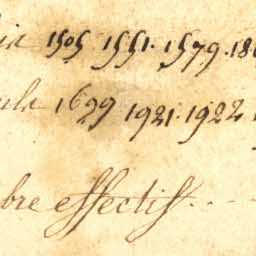 1505 1551. 1579. 18
1699 1921. 1922
bre effectif